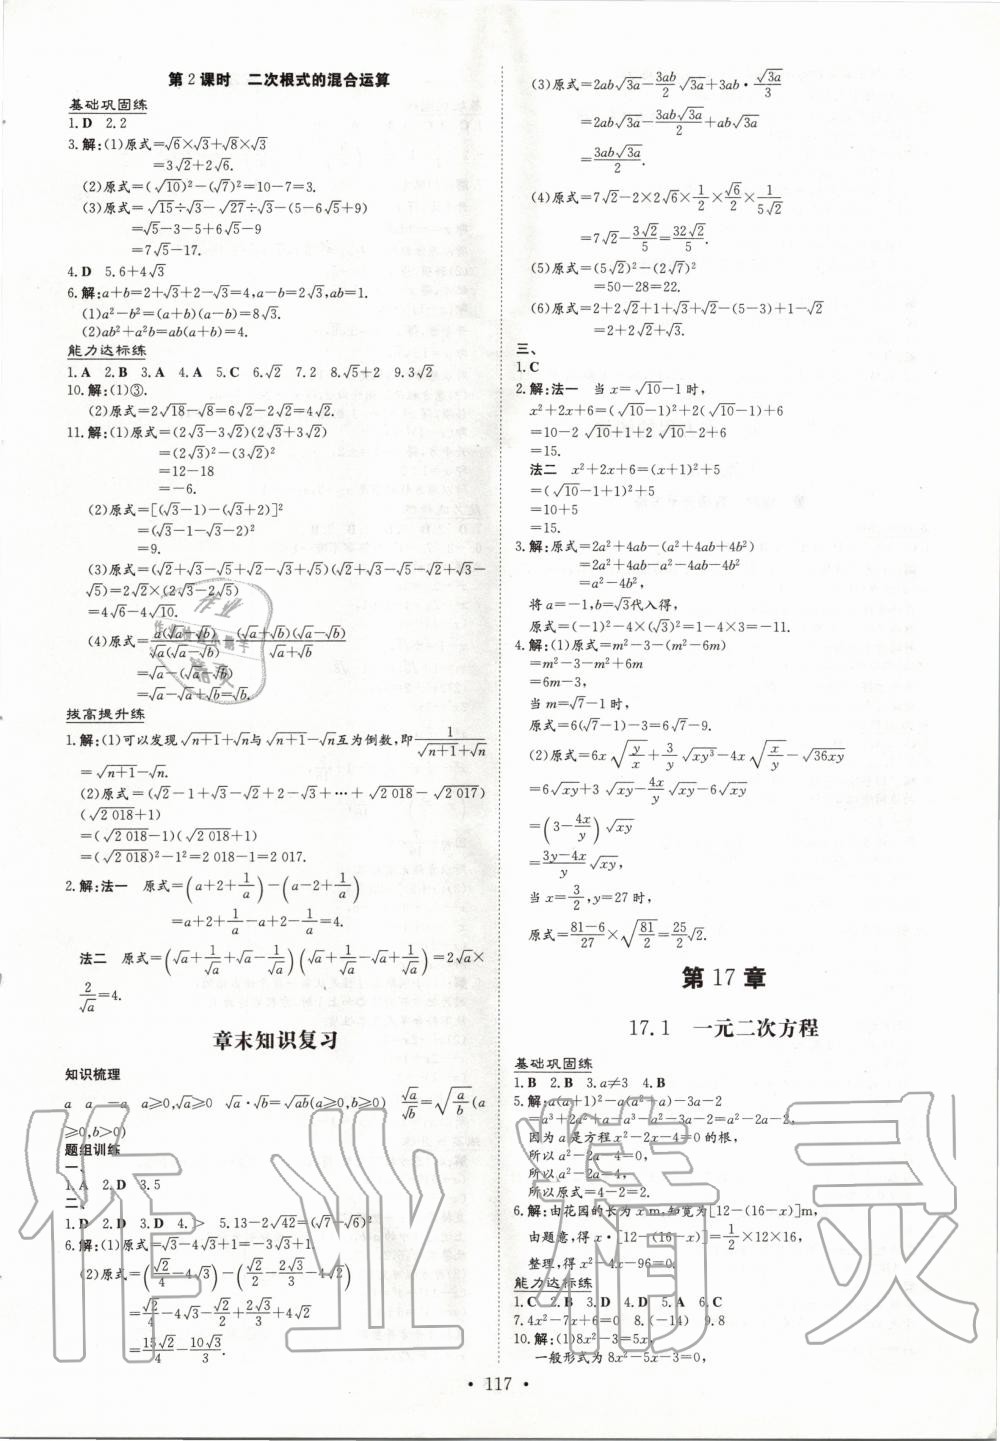 第2课时 二次根式的混合运算
基础巩固练
1.D 2.2
3.解:(1)原式=√6×√3+√8×√3
=3√2+2√6.
(2)原式=(√10)²-(√7)²=10-7=3.
(3)原式=√15÷√3-√27÷√3-(5-6√5+9)
=√5-3-5+6√5-9
=7√5-17.
4.D 5.6+4√3
6.解:a+b=2+√3+2-√3=4,a-b=2√3,ab=1.
(1)a²-b²=(a+b)(a-b)=8√3.
(2)ab²+a²b=ab(a+b)=4.
能力达标练
1.A 2.B 3.A 4.A 5.C 6.√2 7.2 8.√5+2 9.3√2
10.解:(1)③.
(2)原式=2√18-√8=6√2-2√2=4√2.
11.解:(1)原式=(2√3-3√2)(2√3+3√2)
=(2√3)²-(3√2)²
=12-18
=-6.
(2)原式=[(√3-1)-(√3+2)]²
=(√3-1-√3-2)²
=9.
(3)原式=(√2+√3-√5+√2-√3+√5)(√2+√3-√5-√2+√3-
√5)=2√2×(2√3-2√5)
=4√6-4√10.
(4)原式=a(√a-√b)/√a(√a-√b)-(√a+√b)(√a-√b)/√a+√b
=√a-(√a-√b)
=√a-√a+√b=√b.
拔高提升练
1.解:(1)可以发现√n+1+√n与√n+1-√n互为倒数,即1/√n+1+√n
=√n+1-√n.
(2)原式=(√2-1+√3-√2+2-√3+…+√2 018-√2 017)
(√2 018+1)
=(√2 018-1)(√2 018+1)
=(√2 018)²-1²=2 018-1=2 017.
2.解:法一 原式=(a+2+1/a)-(a-2+1/a)
=a+2+1/a-a+2-1/a=4.
法二 原式=(√a+1/√a+√a-1/√a)(√a+1/√a-√a+1/√a)=2√a×
2/√a=4.
章末知识复习
知识梳理
a a -a a≥0,√a≥0 √a·√b=√ab(a≥0,b≥0) √a/√b=√(a/b)(a
≥0,b>0)
题组训练
一、
1.A 2.D 3.5
二、
1.D 2.D 3.D 4.> 5.13-2√42=(√7-√6)²
6.解:(1)原式=√3-4√3+1=-3√3+1.
(2)原式=(√2/4-4√3)-(√2/2-2√3/3-4√2)
=√2/4-4√3-√2/2+2√3/3+4√2
=15√2/4-10√3/3.
(3)原式=2ab√3a-3ab/2√3a+3ab·√3a/3
=2ab√3a-3ab√3a/2+ab√3a
=3ab√3a/2.
(4)原式=7√2-2×2√6×1/2×√6/2×1/5√2
=7√2-3√2/5=32√2/5.
(5)原式=(5√2)²-(2√7)²
=50-28=22.
(6)原式=2+2√2+1+√3+√2-(5-3)+1-√2
=2+2√2+√3.
三、
1.C
2.解:法一 当x=√10-1时,
x²+2x+6=(√10-1)²+2(√10-1)+6
=10-2√10+1+2√10-2+6
=15.
法二 x²+2x+6=(x+1)²+5
=(√10-1+1)²+5
=10+5
=15.
3.解:原式=2a²+4ab-(a²+4ab+4b²)
=2a²+4ab-a²-4ab-4b²
=a²-4b²,
将a=-1,b=√3代入得,
原式=(-1)²-4×(√3)²=1-4×3=-11.
4.解:(1)原式=m²-3-(m²-6m)
=m²-3-m²+6m
=6m-3,
当m=√7-1时,
原式=6(√7-1)-3=6√7-9.
(2)原式=6x√(y/x)+3/y√xy³-4x√(x/y)-√36xy
=6√xy+3√xy-4x/y√xy-6√xy
=(3-4x/y)√xy
=3y-4x/y√xy,
当x=3/2,y=27时,
原式=81-6/27×√(81/2)=25/2√2.
第17章
17.1 一元二次方程
基础巩固练
1.B 2.B 3.a≠3 4.B
5.解:a(a+1)²-a(a²+a)-3a-2
=a³+2a²+a-a³-a²-3a-2=a²-2a-2,
因为a是方程x²-2x-4=0的根,
所以a²-2a-4=0,
所以a²-2a=4,
所以原式=4-2=2.
6.解:由花园的长为x m,知宽为[12-(16-x)]m,
由题意,得x·[12-(16-x)]=1/2×12×16,
整理,得x²-4x-96=0.
能力达标练
1.C 2.B 3.D 4.D 5.A 6.C
7.4x²-7x+6=0 8.(-14) 9.8
10.解:(1)8x²-3=5x,
一般形式为8x²-5x-3=0,
• 117 •
作业精灵